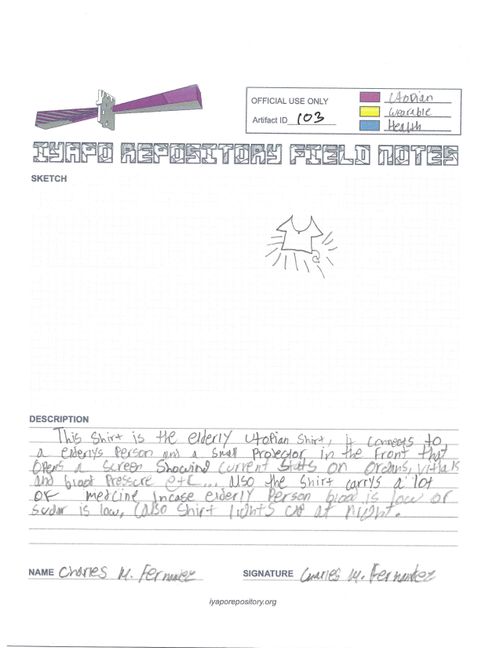 OFFICIAL USE ONLY
Artifact ID 103
Utopian
Wearable
Health
IYAPO REPOSITORY FIELD NOTES
SKETCH
DESCRIPTION
This Shirt is the elderly Utopian Shirt, it connects to
a elderlys Person and a Small Projector in the front that
opens a Screen Showing current Stats on organs, vitals
and blood Pressure etc... Also the Shirt carrys a lot
OF medcine incase elderly Person blood is low or
Sugar is low, (also Shirt lights up at night.
NAME Charles M. Fernandez
SIGNATURE Charles M. Fernandez
iyaporepository.org